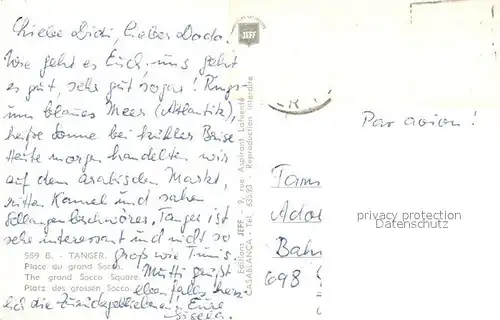 Liebe Didi, lieber Dodo!
Wie geht es Euch, uns geht
es gut, sehr gut sogar! Rings-
um blaues Meer (Atlantik),
heiße Sonne bei kühler Brise
Heute morgen handelten wir
auf dem arabischen Markt,
ritten Kamel und sahen
Schlangenbeschwörer, Tanger ist
sehr interessant und nicht so
groß wie Tunis.
Mutti grüßt
ebenfalls herz-
lich die Zurückgebliebenen, Eure
Gisela.
569 B. - TANGER.
Place du grand Socco.
The grand Socco Square.
Platz des grossen Socco
JEFF
Editions JEFF - 9, rue Aspirant Lafrenté
CASABLANCA - Tél. 635.23 - Reproduction interdite
Par avion!
Fam
Ado
Bahn
698
privacy protection
Datenschutz